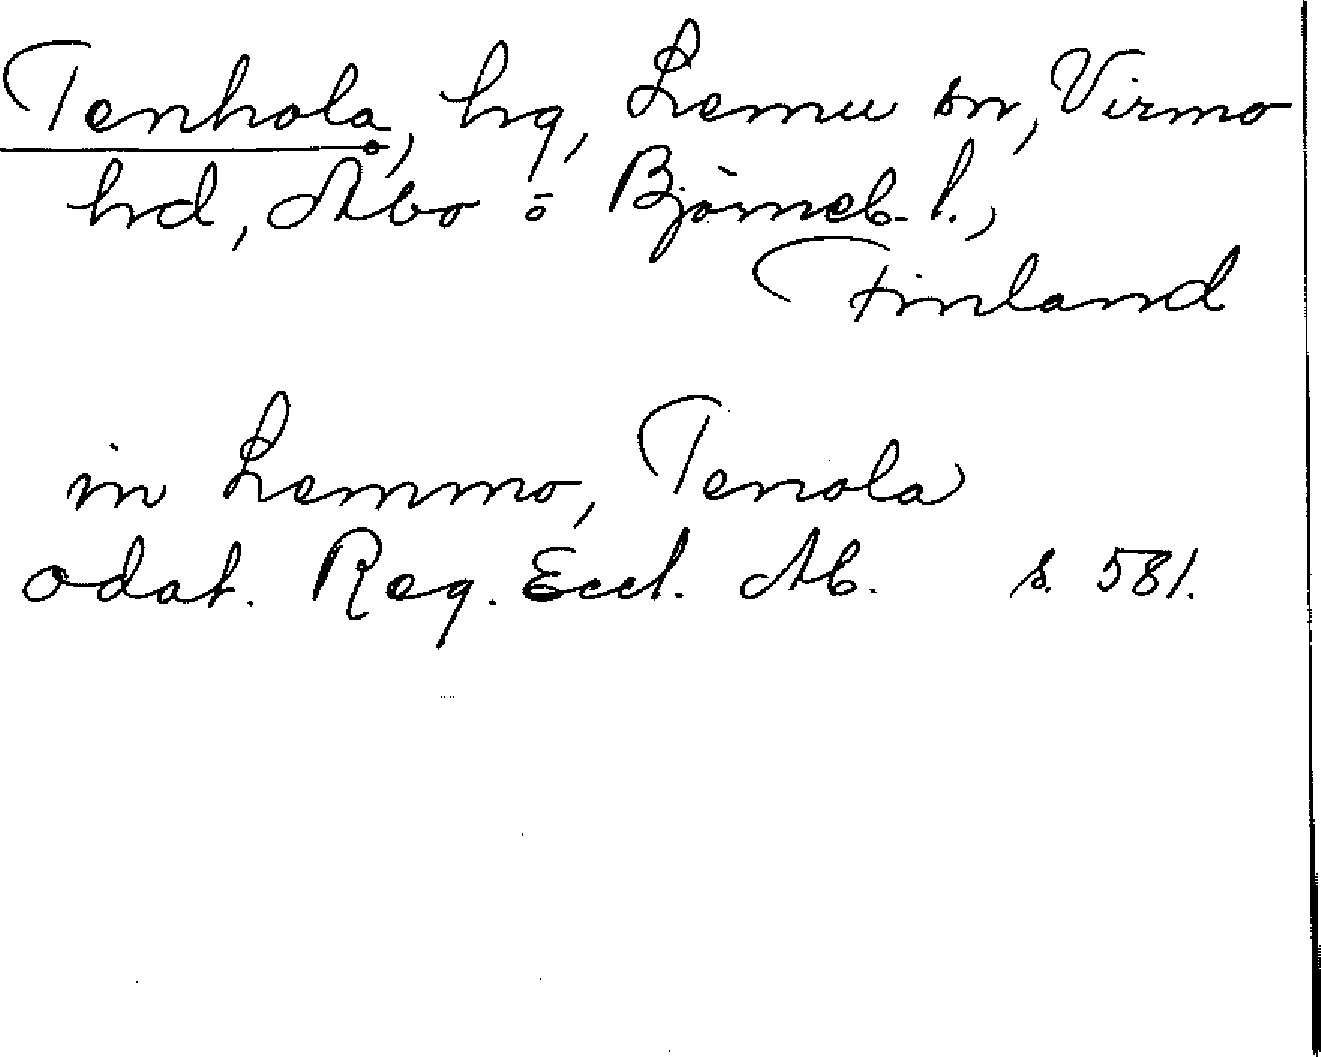 Tenhola, hg, Lemu sn, Virmo
hrd, Åbo o Björneb. l.,
Finland
in Lemmo, Tenola
odat. Reg. Eccl. Ab. s. 581.